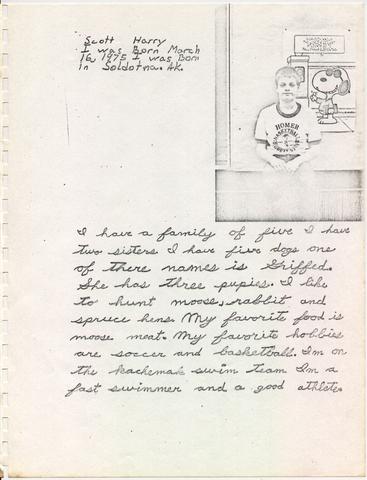 Scott Harry
I was Born March
16, 1975 I was Born
in Soldotna. AK.
HOMER
BASKETBALL
I have a family of five I have
two sisters I have five dogs one
of there names is Griffed.
She has three pupies. I like
to hunt moose, rabbit and
spruce hens. My favorite food is
moose meat. My favorite hobbies
are soccer and basketball. I'm on
the Kachemak swim team I'm a
fast swimmer and a good athlete.